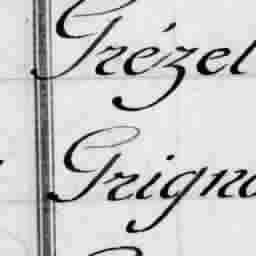 Grézel
Grigno